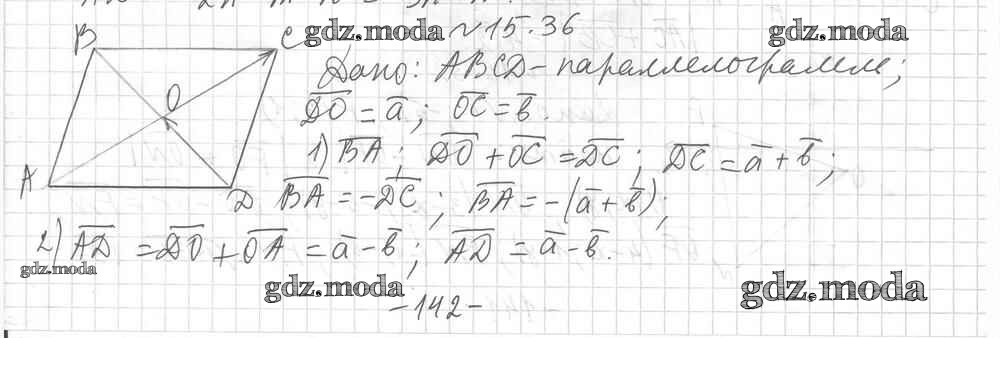 B C gdz.moda №15.36 gdz.moda
O Дано: ABCD - параллелограмм;
D̅O̅ = a̅; O̅C̅ = b̅.
1) B̅A̅; D̅O̅ + O̅C̅ = D̅C̅; D̅C̅ = a̅ + b̅;
A D B̅A̅ = -D̅C̅; B̅A̅ = -(a̅ + b̅);
2) A̅D̅ = D̅O̅ + O̅A̅ = a̅ - b̅; A̅D̅ = a̅ - b̅.
gdz.moda
gdz.moda gdz.moda
-142-